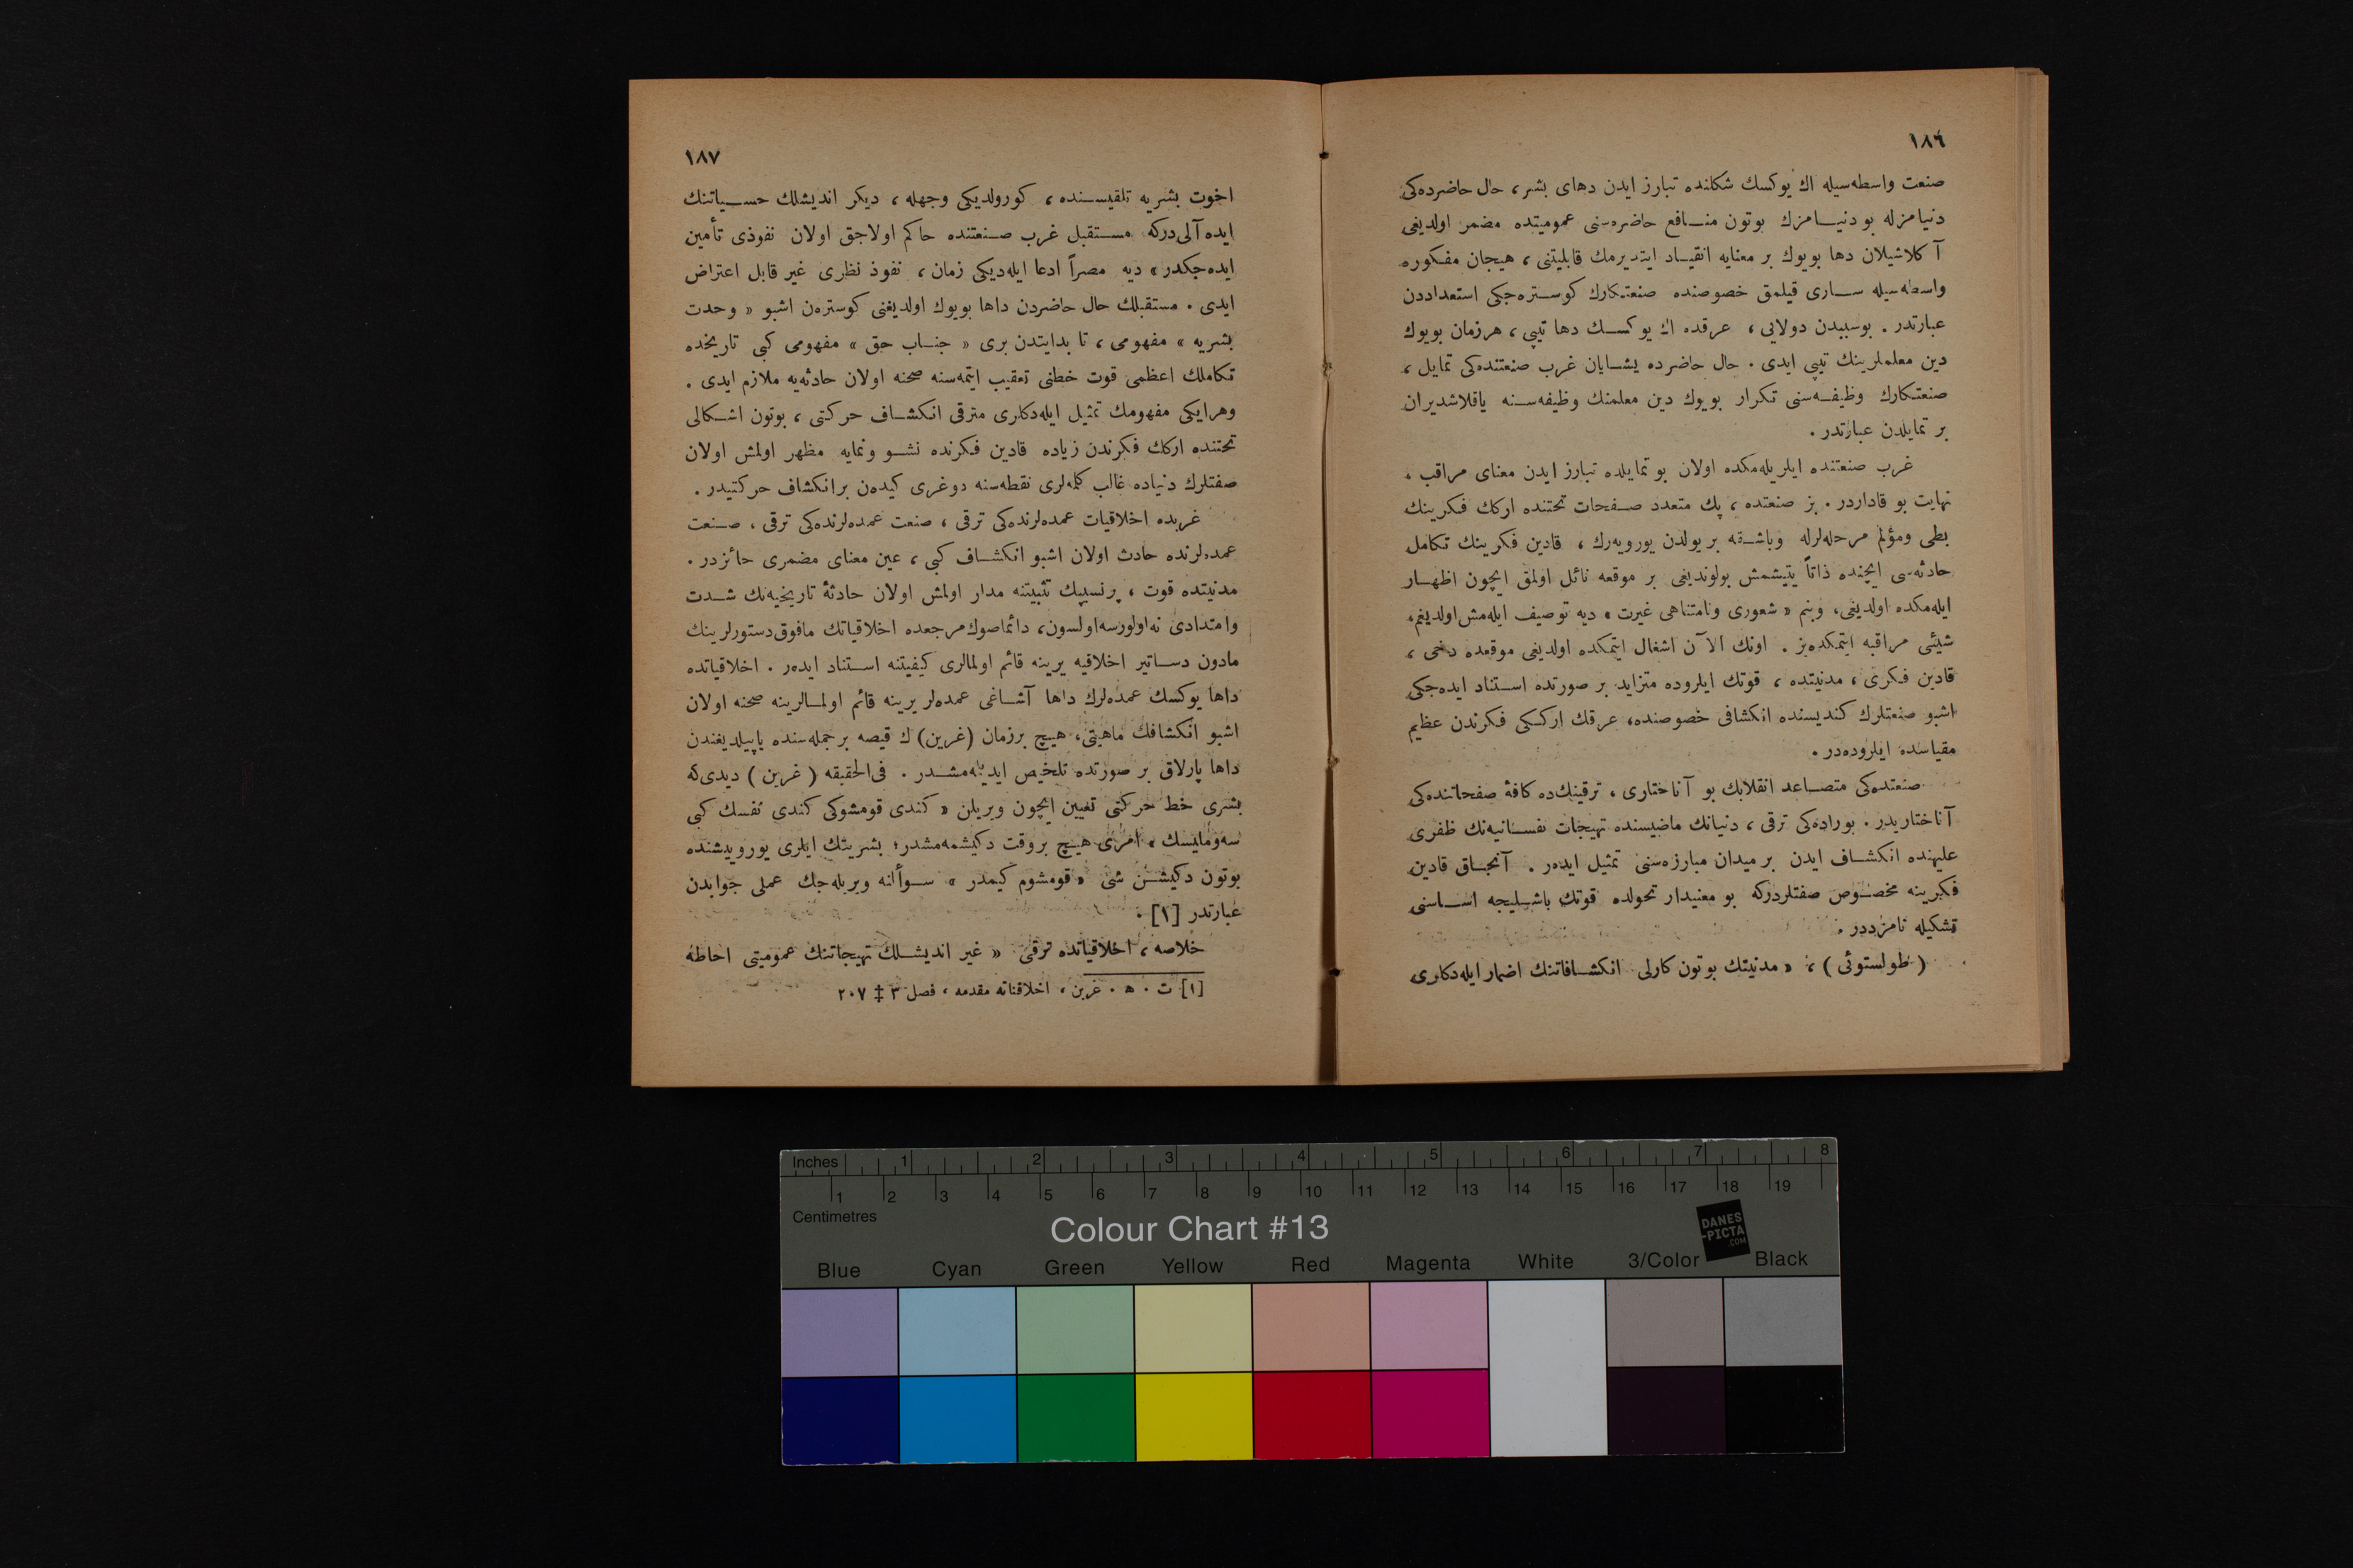 ١٨٦
صنعت واسطه‌سیله اك یوكسك شكلنده تبارز ایدن دهای بشر، حال حاضرده‌كی
دنیامزله بو دنیـــامزك بوتون منـــافع حاضره‌سنی عمومیتده مضمر اولدیغی
آ كلاشیلان دها بویوك بر معنایه انقیـــاد ایتدیرمك قابلیتنی، هیجان مفكوره
واسطه‌سیله ســـاری قیلمق خصوصنده صنعتكارك كوســتره‌جكی استعداددن
عبارتدر. بوسببدن دولایی، عرقده اك یوكســك دها تیپی، هرزمان بویوك
دین معلملرینك تیپی ایدی. حال حاضرده یشـــایان غرب صنعتنده‌كی تمایل،
صنعتكارك وظیفــه‌سنی تكرار بویوك دین معلمنك وظیفه‌ســنه یاقلاشدیران
بر تمایلدن عبارتدر.
غرب صنعتنده ایلریله‌مكده اولان بو تمایلده تبارز ایدن معنای مراقب،
نهایت بو قاداردر. بز صنعتده، پك متعدد صــفحات تحتنده اركك فكرینك
بطی ومؤلم مرحله‌لرله وباشــقه بر یولدن یورویه‌رك، قادین فكرینك تكامل
حادثه‌سی ایچنده ذاتاً یتیشمش بولوندیغی بر موقعه نائل اولمق ایچون اظهــار
ایله‌مكده اولدیغی، وبنم « شعوری ونامتناهی غیرت » دیه توصیف ایله‌مش اولدیغم،
شیئی مراقبه ایتمكده‌یز. اونك الآن اشغال ایتمكده اولدیغی موقعده دخی،
قادین فكری، مدنیتده، قوتك ایلروده متزاید بر صورتده اســتناد ایده‌جكی
اشبو صنعتلرك كندیسنده انكشافی خصوصنده، عرقك اركــكی فكرندن عظیم
مقیاسده ایلروده‌در.
صنعتده‌كی متصــاعد انقلابك بو آناختاری، ترقینك‌ده كافۀ صفحاتنده‌كی
آناختاریدر. بوراده‌كی ترقی، دنیانك ماضیسنده تهیجات نفســانیه‌نك ظفری
علیهنده انكشــاف ایدن بر میدان مبارزه‌سنی تمثیل ایده‌ر. آنجــاق قادین
فكرینه مخصــوص صفتلردركه بو معنیدار تحولده قوتك باشــلیجه اســاسنی
تشكیله نامزددر.
( طولستوئی )، « مدنیتك بوتون كارلی انكشــافاتنك اضمار ایله‌دكاری
١٨٧
اخوت بشریه تلقیســنده، كورولدیكی وجهله، دیكر اندیشلك حســیاتنك
ایده آلی‌دركه مســتقبل غرب صــنعتنده حاكم اولاجق اولان نفوذی تأمین
ایده‌جكدر» دیه مصراً ادعا ایله‌دیكی زمان، نفوذ نظری غیر قابل اعتراض
ایدی. مستقبلك حال حاضردن داها بویوك اولدیغنی كوستره‌ن اشبو « وحدت
بشریه » مفهومی، تا بدایتدن بری « جنــاب حق » مفهومی كبی تاریخده
تكاملك اعظمی قوت خطنی تعقیب ایتمه‌سنه صحنه اولان حادثه‌یه ملازم ایدی.
وهرایكی مفهومك تمثیل ایله‌دكاری مترقی انكشــاف حركتی، بوتون اشــكالی
تحتنده اركك فكرندن زیاده قادین فكرنده نشــو ونمایه مظهر اولمش اولان
صفتلرك دنیاده غالب كلمه‌لری نقطه‌سنه دوغری كیده‌ن برانكشاف حركتیدر.
غربده اخلاقیات عمده‌لرنده‌كی ترقی، صنعت عمده‌لرنده‌كی ترقی، صــنعت
عمده‌لرنده حادث اولان اشبو انكشــاف كبی، عین معنای مضمری حائزدر.
مدنیتده قوت، پرنسیپك تثبیتنه مدار اولمش اولان حادثۀ تاریخیه‌نك شــدت
وامتدادی نه‌اولورسه‌اولسون، دائماصوك‌مرجعده اخلاقیاتك مافوق‌دستورلرینك
مادون دســاتیر اخلاقیه یرینه قائم اولمالری كیفیتنه اســتناد ایده‌ر. اخلاقیاتده
داها یوكسك عمده‌لرك داها آشــاغی عمده‌لر یرینه قائم اولمــالرینه صحنه اولان
اشبو انكشافك ماهیتی، هیچ برزمان (غرین) ك قیصه برجمله‌سنده یاپیلدیغندن
داها پارلاق بر صورتده تلخیص ایدیله‌مشــدر. فی‌الحقیقه ( غرین ) دیدی‌كه
بشری خط حركتی تعیین ایچون ویریلن « كندی قومشوكی كندی نفسك كبی
سه‌ومالیسك » امری هیــچ بروقت دكیشمه‌مشدر؛ بشریتك ایلری یورویشنده
بوتون دكیشــن شی « قومشوم كیمدر » ســوآلنه ویریله‌جك عملی جوابدن
عبارتدر [١].
خلاصه، اخلاقیاتده ترقی « غیر اندیشــلك تهیجاتنك عمومیتی احاطه
[١] ت. ه. غرین، اخلاقیاته مقدمه، فصل ٣ ‡ ٢٠٧
Inches 1 2 3 4 5 6 7 8
1 2 3 4 5 6 7 8 9 10 11 12 13 14 15 16 17 18 19
Centimetres
Colour Chart #13
DANES
-PICTA
.COM
Blue Cyan Green Yellow Red Magenta White 3/Color Black